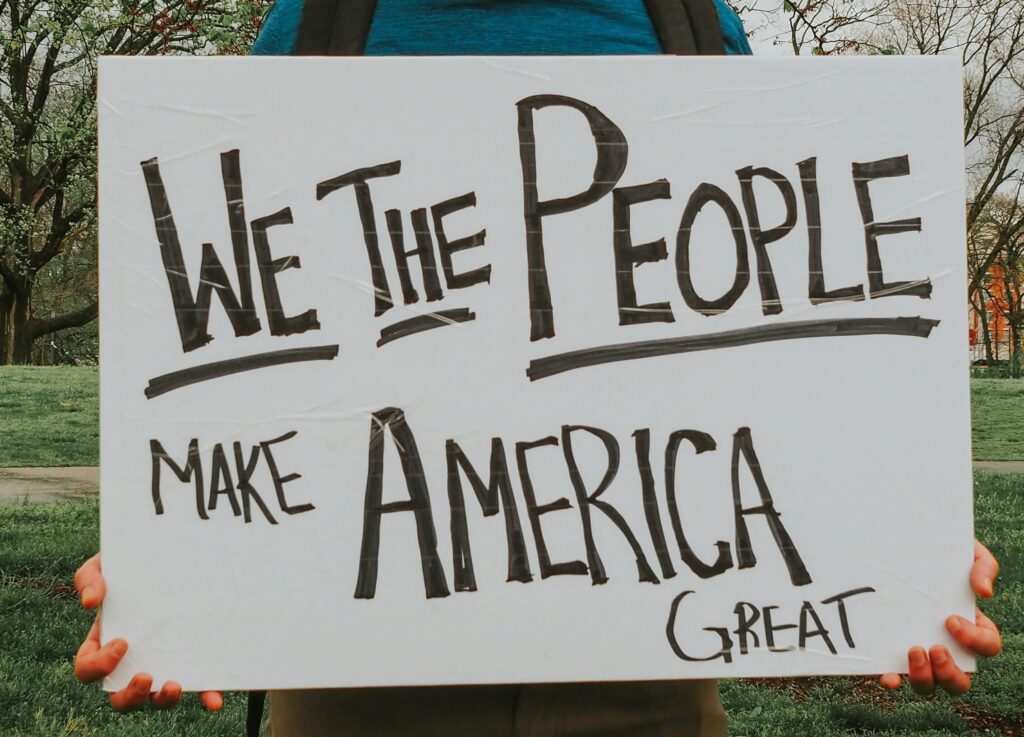 WE THE PEOPLE
MAKE AMERICA
GREAT